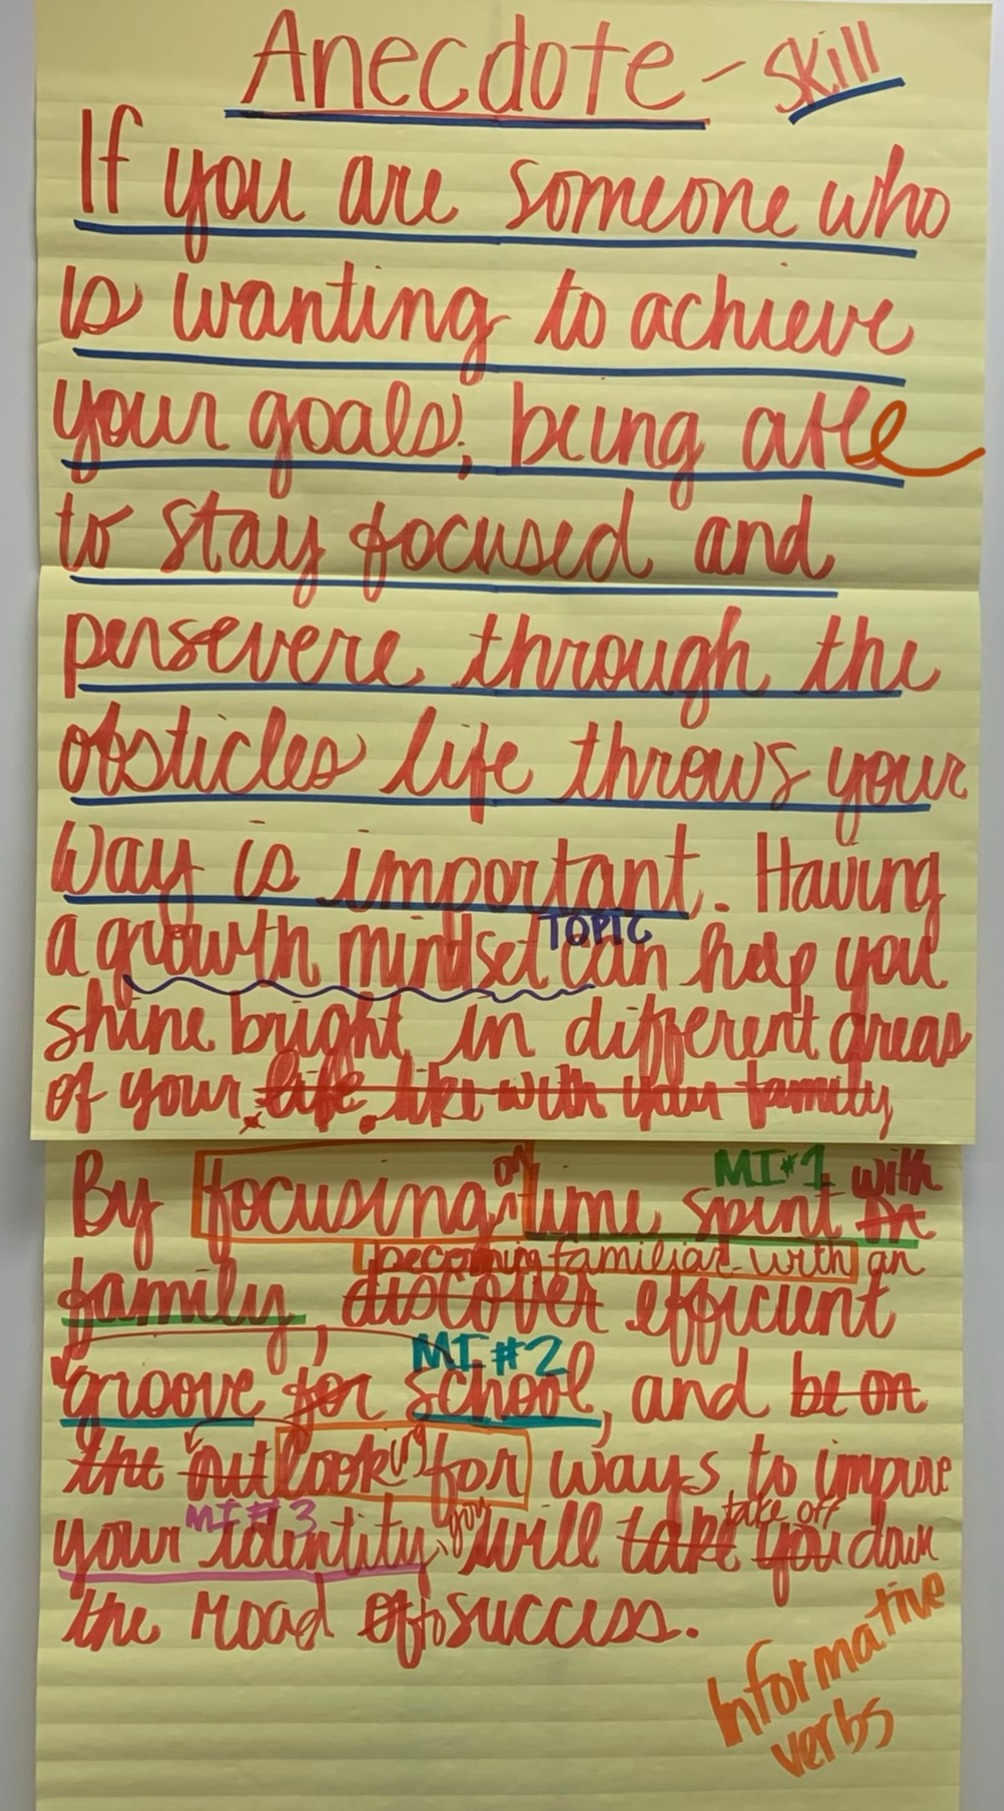 Anecdote - Skill
If you are someone who
is wanting to achieve
your goals, being able
to stay focused and
persevere through the
obsticles life throws your
way is important. Having
a growth mindset can help you
TOPIC
shine bright in different areas
of your life. like with your family,
By focusing on time spent in with
MI#1
family, discover becoming familiar with an efficient
groove for school, and be on
MI#2
the outlooking for ways to improve
your identity, you will take you take off down
MI#3
the road of to success.
Informative
verbs